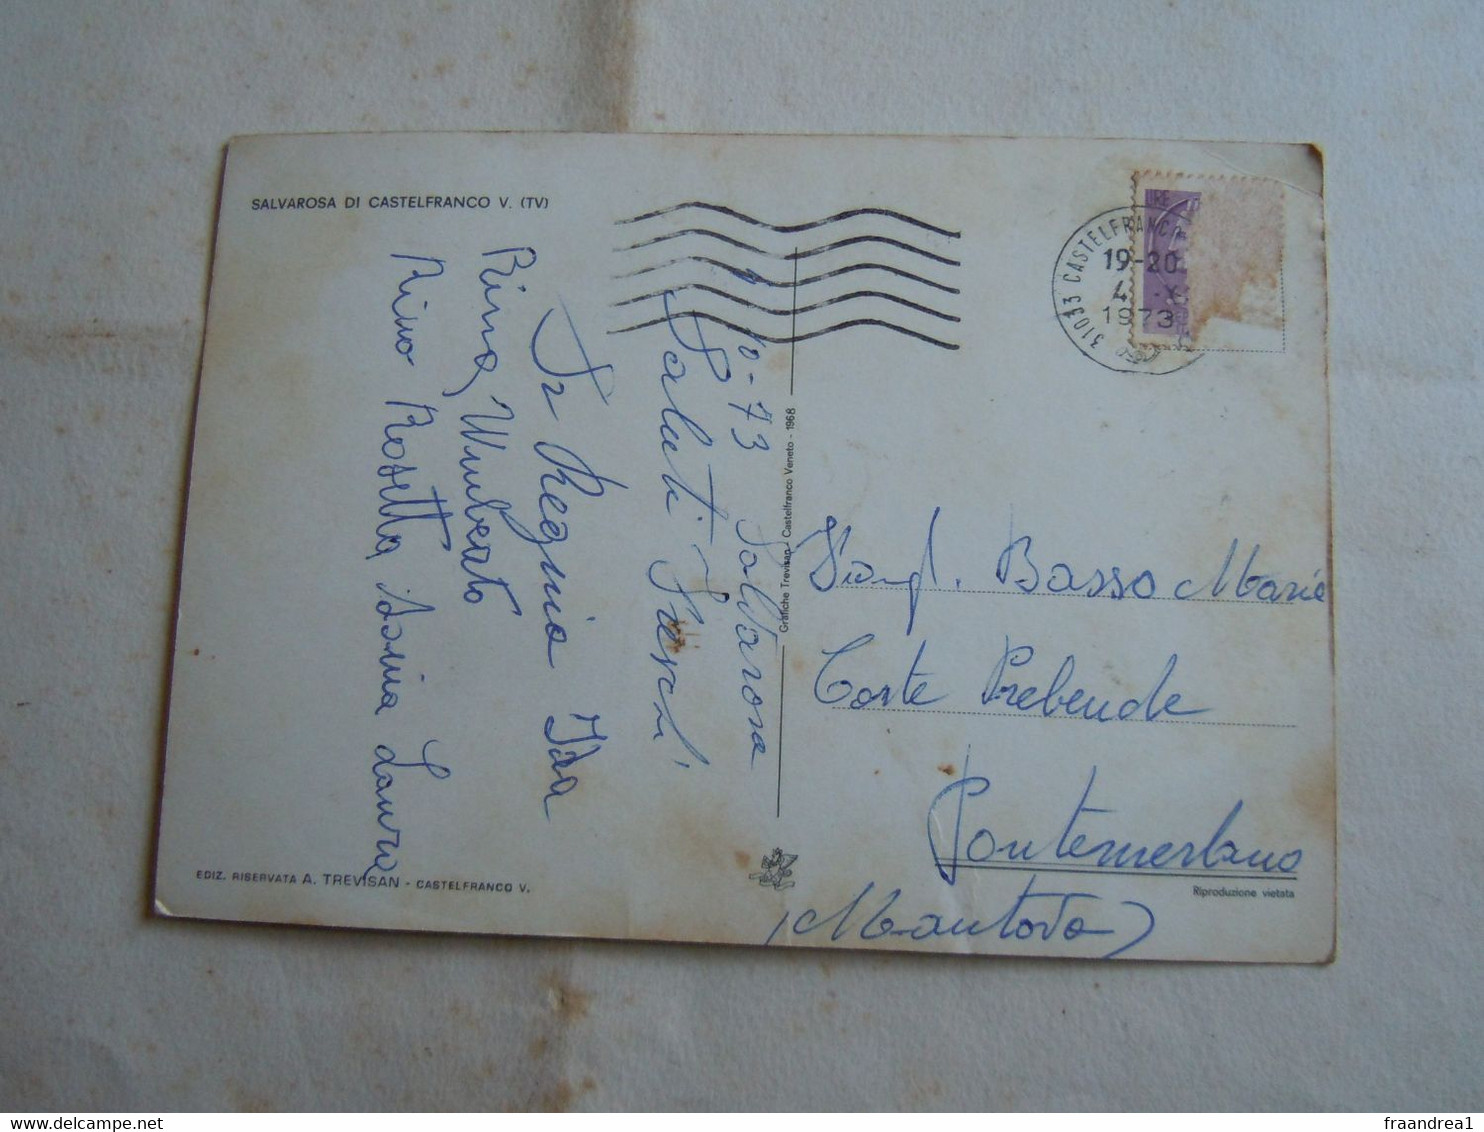 SALVAROSA DI CASTELFRANCO V. (TV)
10-73 Salvarosa
Saluti Freschi
Ida
Rina, Umberto
Rino Rosetta Sonia Laura
EDIZ. RISERVATA A. TREVISAN - CASTELFRANCO V.
Grafiche Trevisan - Castelfranco Veneto - 1968
LIRE
31033 CASTELFRANCO
19-20
4 X
1973
Basso Maria
Corte Prebende
Pontemerlano
(Mantova)
Riproduzione vietata
delcampe.net
fraandrea1